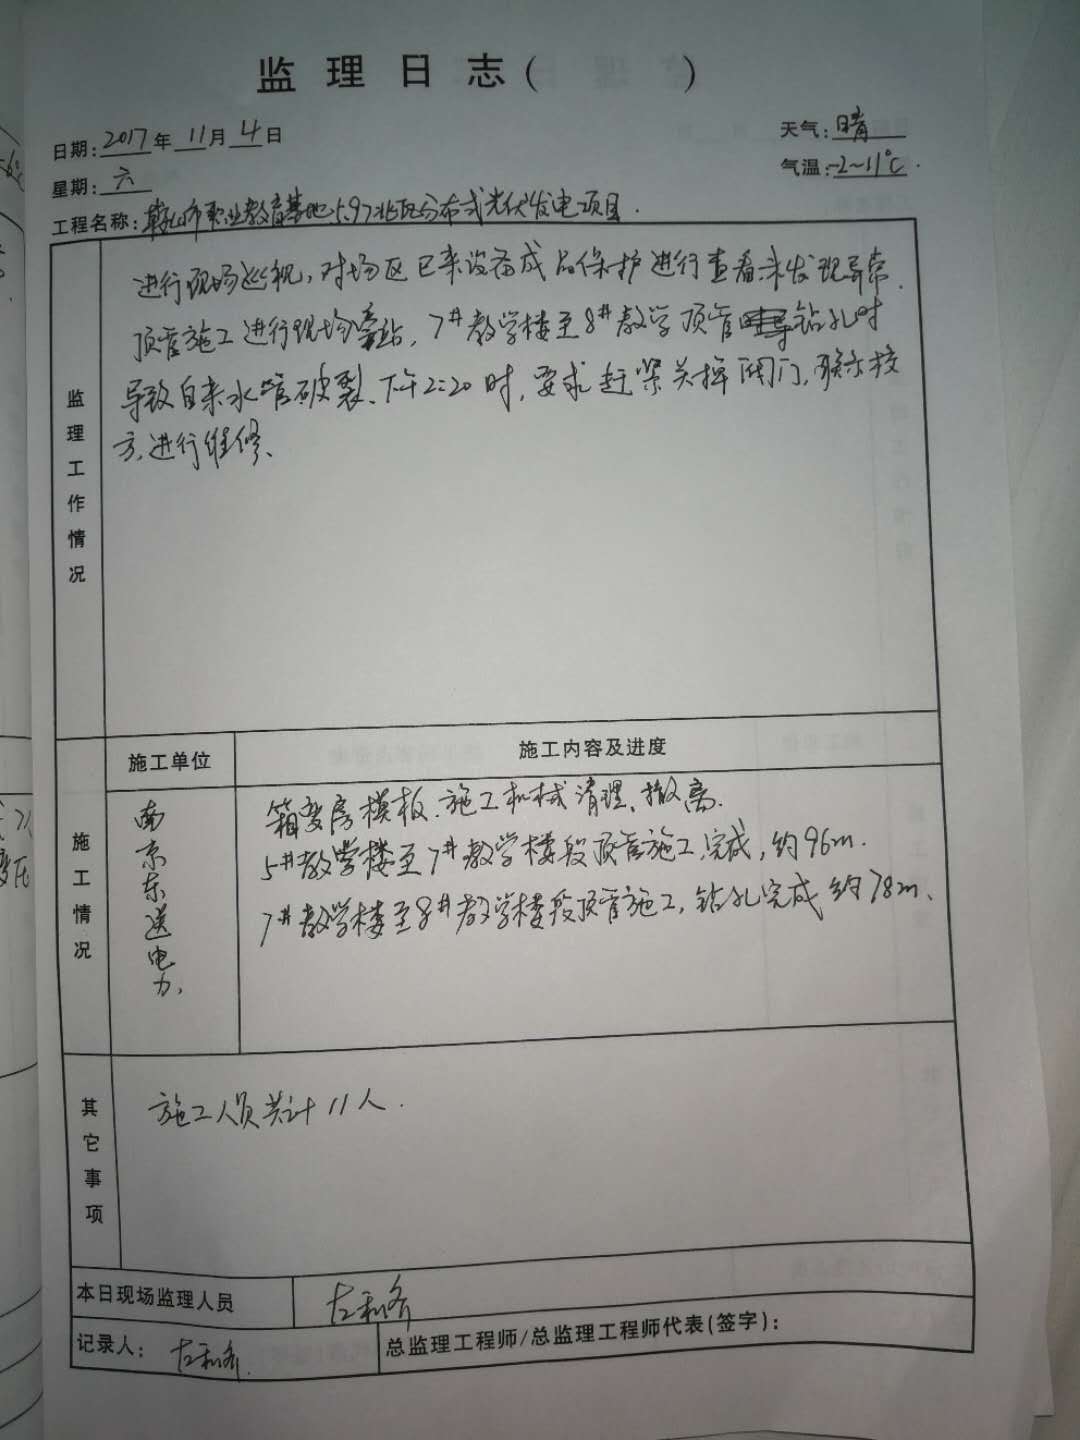 监理日志(          )
日期:2017年11月4日
天气:晴
星期:六
气温:-2~11℃.
工程名称:市职业教育基地5.97兆瓦分布式光伏发电项目.
监理工作情况
进行现场巡视,对场区已来设备成品保护进行查看未发现异常.
顶管施工进行现场旁站,7#教学楼至8#教学顶管钻孔时
导致自来水管破裂、下午2:20时,要求赶紧关掉阀门,联系校
方,进行维修、
施工情况
施工单位
施工内容及进度
南京东送电力,
箱变房模板.施工机械清理、撤离.
5#教学楼至7#教学楼段顶管施工,完成,约96m.
7#教学楼至8#教学楼段顶管施工,钻孔完成约78m、
其它事项
施工人员共计11人.
本日现场监理人员
记录人:
总监理工程师/总监理工程师代表(签字):